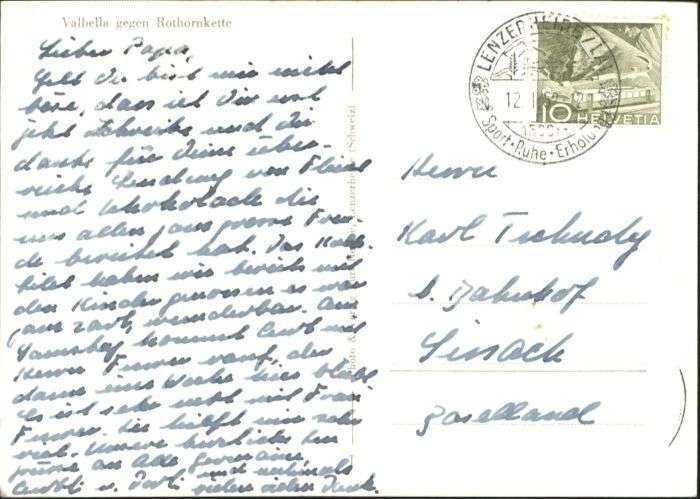 Valbella gegen Rothornkette
Lieber Papa,
Gell Du bist mir nicht
böse, dass ich Dir erst
jetzt schreibe und Dir
danke für Deine über-
reiche Sendung von Fleisch
und Schokolade die
uns allen ganz grosse Freu-
de bereitet hat. Das Kalb-
haben wir bereits mit
den Kinder genossen es war
ganz zart, wunderbar. Am
Samstag kommt Curt mit
Herrn Furrer rauf, der
dann eine Woche hier bleibt
Es ist sehr nett mit Frau
Furrer, sie hilft mir sehr
viel. Unsere herzlichsten
grüsse an Alle
u. und nochmals
vielen vielen Dank.
LENZERHEIDE/LAI
12.
1500 m
Sport·Ruhe·Erholung
10 HELVETIA
Herrn
Karl Tschudy
b. Bahnhof
Sissach
Baselland
(Schweiz)